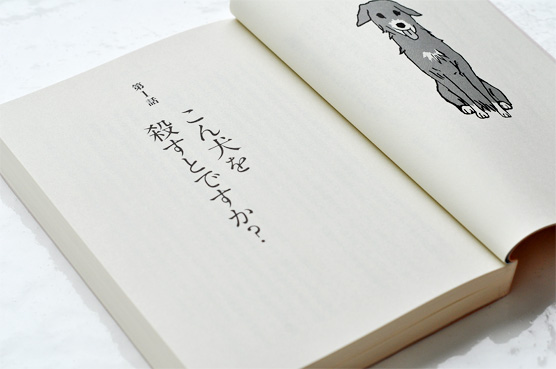 第1話
こん犬を
殺すとですか?